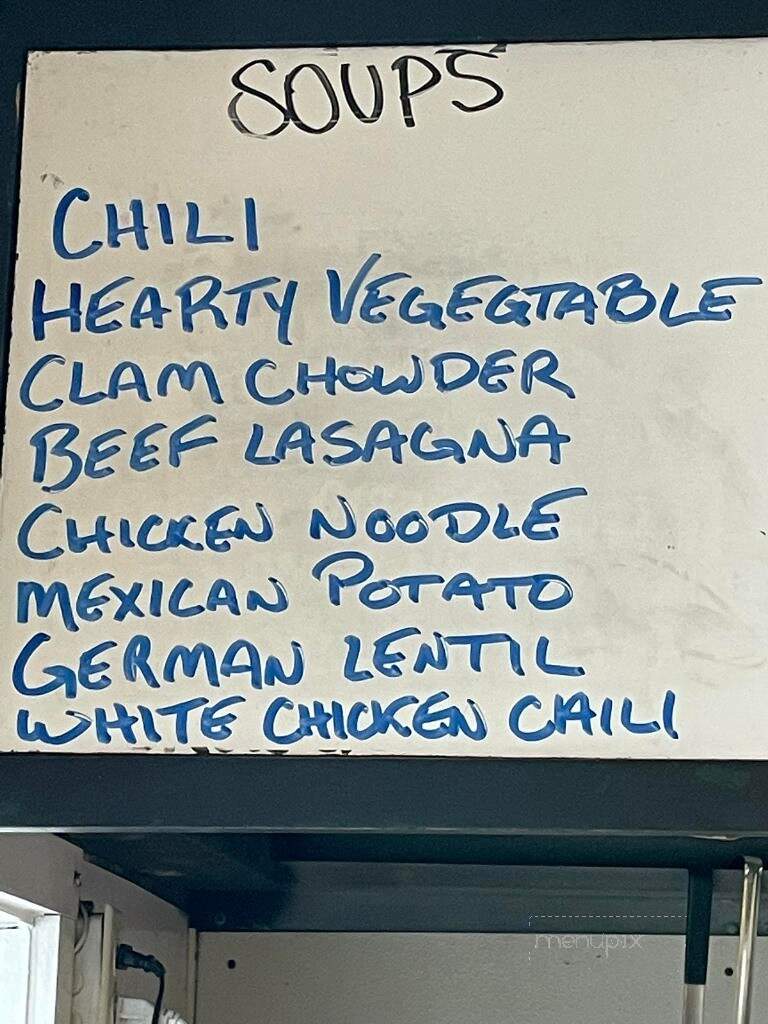 SOUPS
CHILI
HEARTY VEGEGTABLE
CLAM CHOWDER
BEEF LASAGNA
CHICKEN NOODLE
MEXICAN POTATO
GERMAN LENTIL
WHITE CHICKEN CHILI
menupix